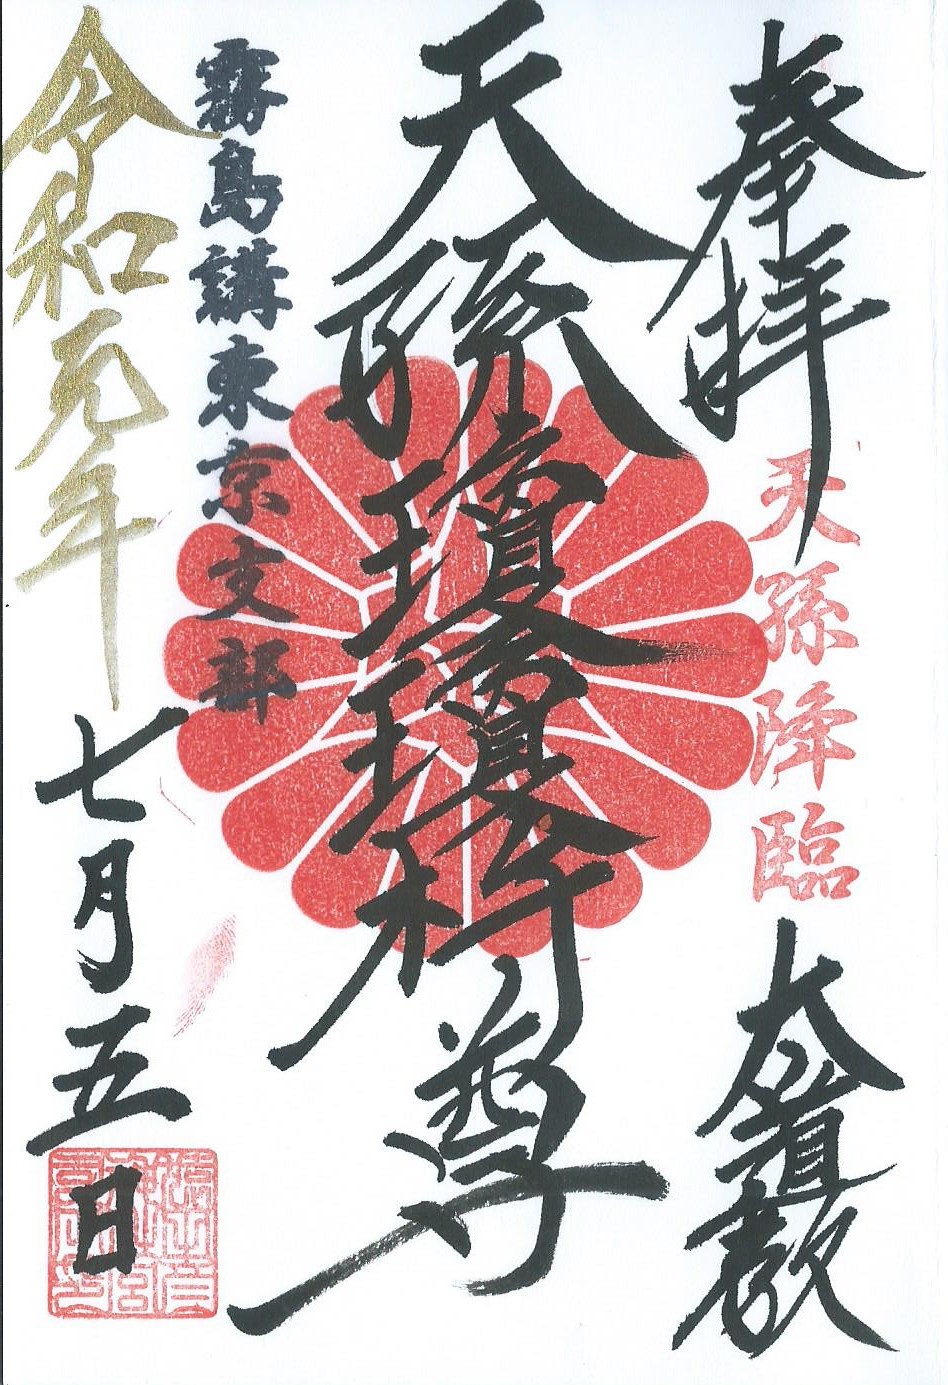 奉拝
天孫降臨
大道教
天孫瓊瓊杵尊
霧島講東京支部
令和元年
七月五日